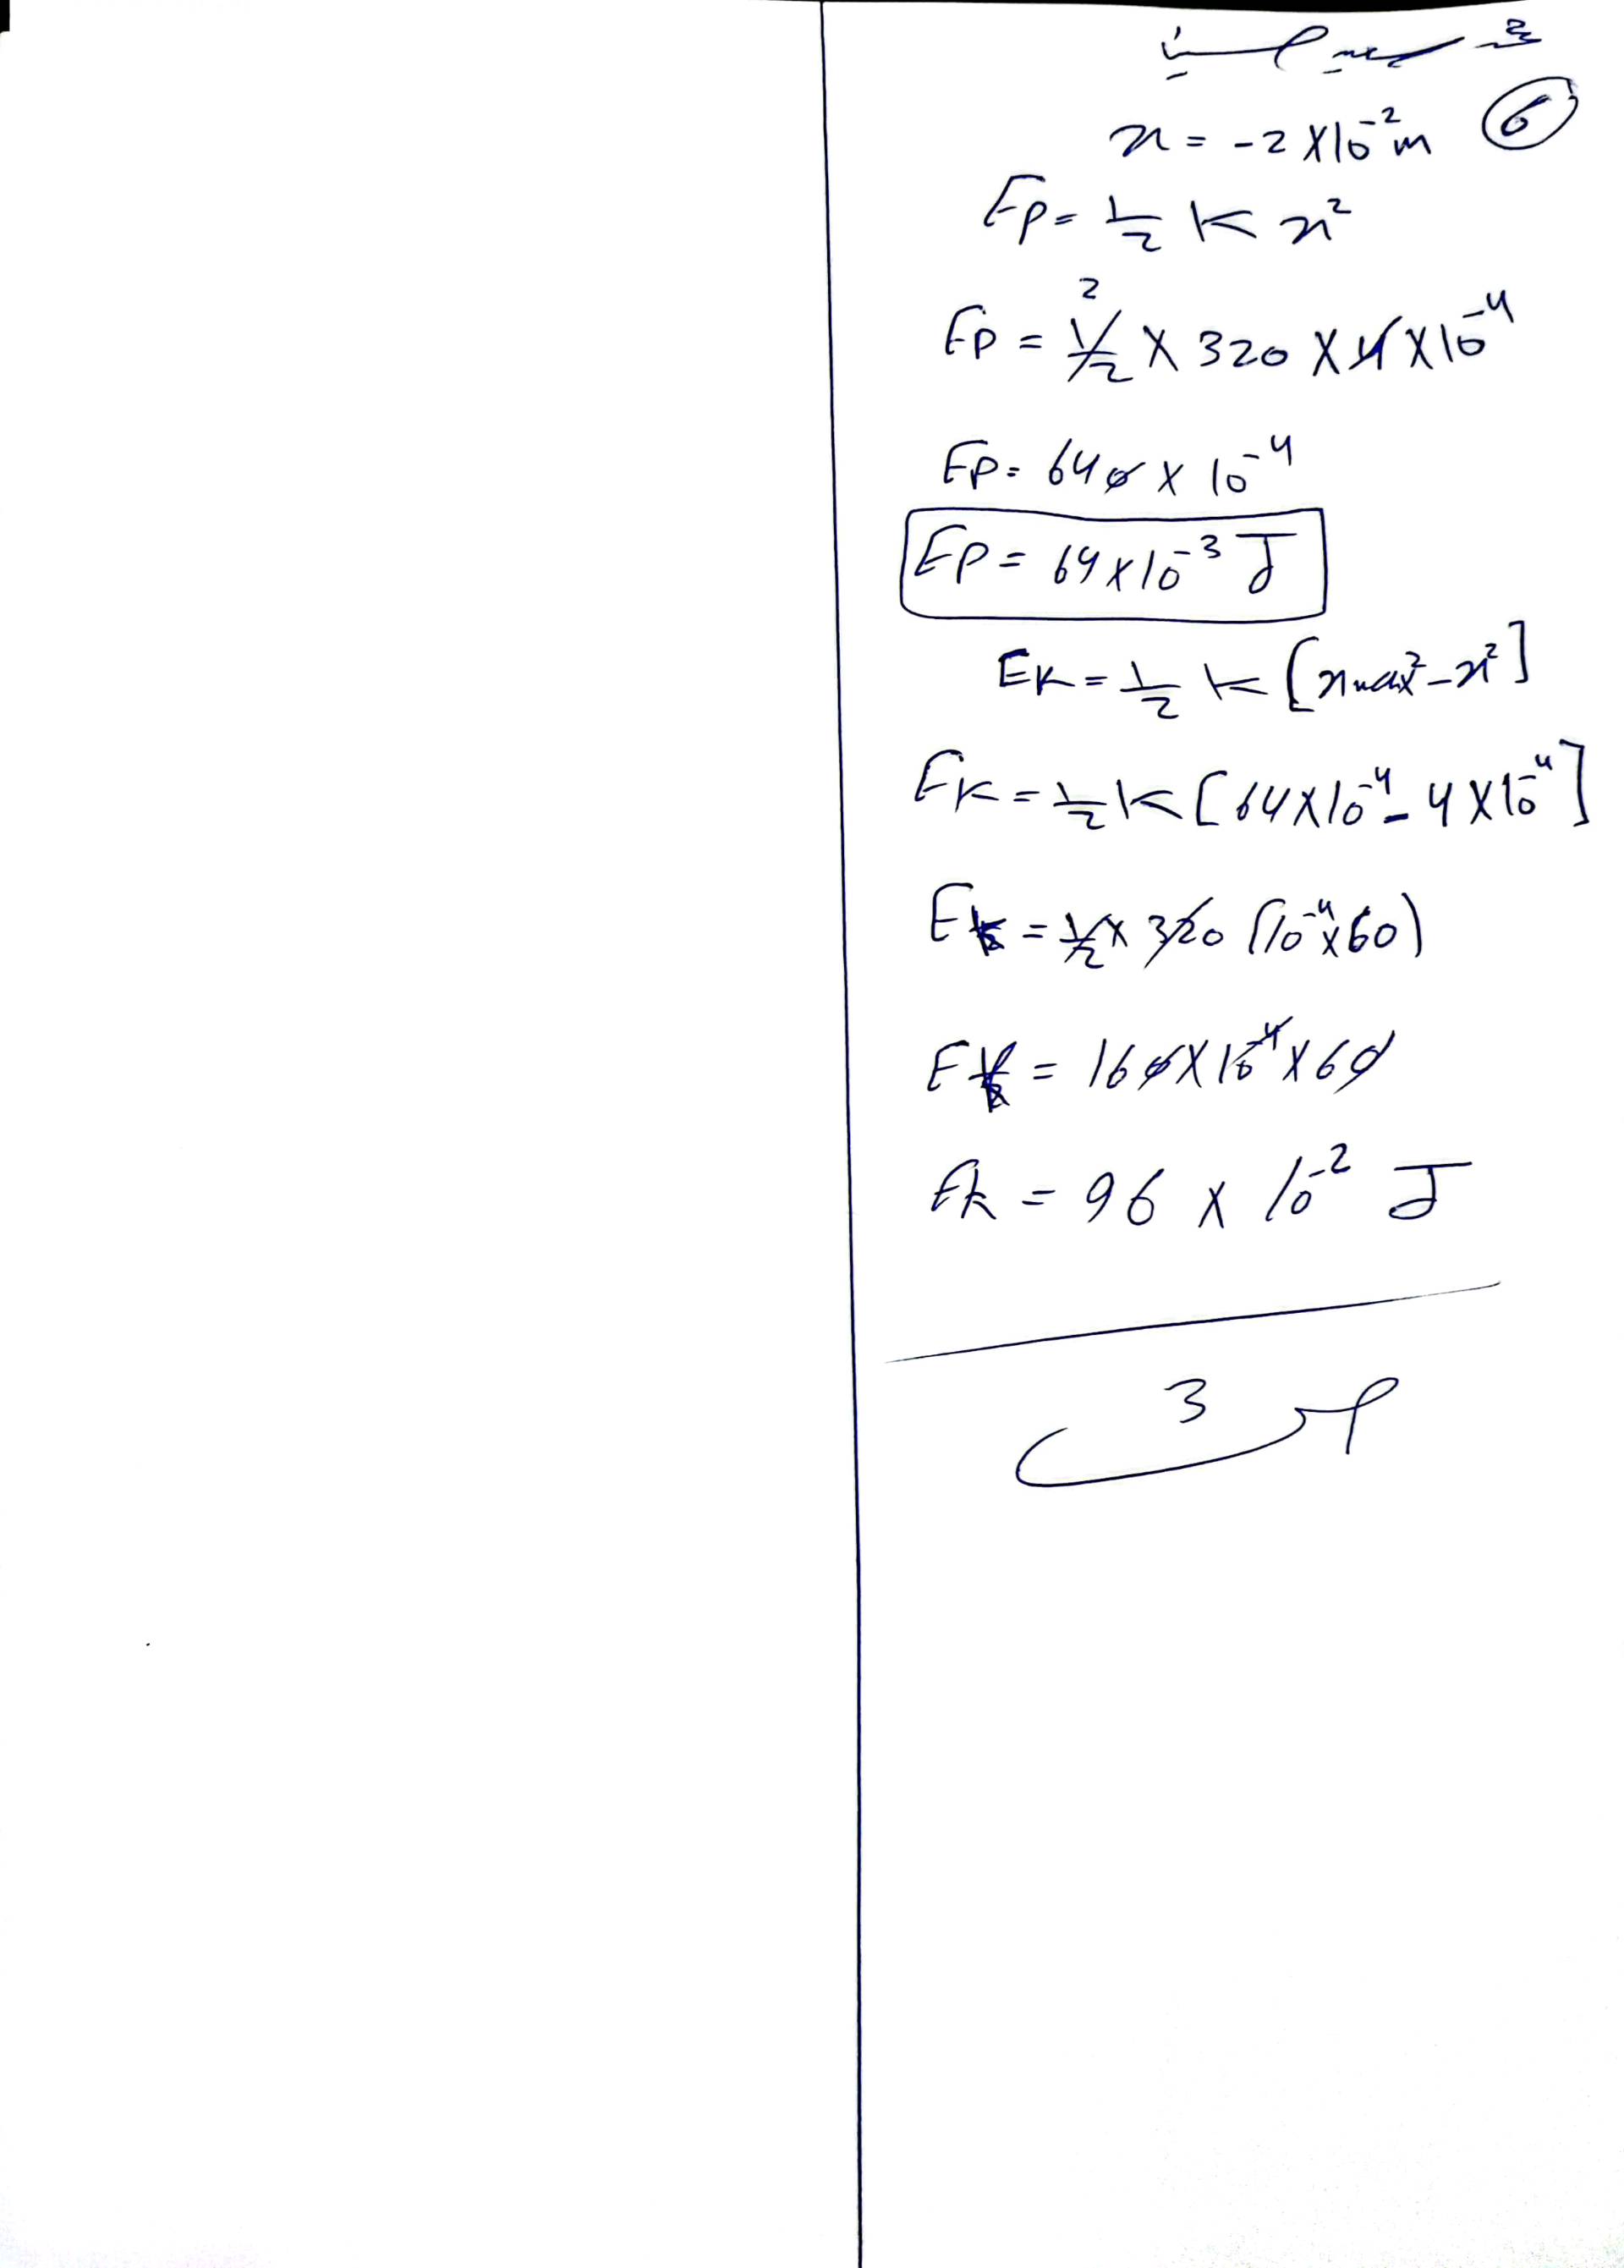 ⑥
x = -2 × 10⁻² m
Ep = 1/2 K x²
Ep = 1/2 × 320 × 4 × 10⁻⁴
2
Ep = 640 × 10⁻⁴
Ep = 64 × 10⁻³ J
EK = 1/2 K [xmax² - x²]
EK = 1/2 K [64 × 10⁻⁴ - 4 × 10⁻⁴]
Ek = 1/2 × 320 (10⁻⁴ × 60)
Ek = 160 × 10⁻⁴ × 60
Ek = 96 × 10⁻² J
3